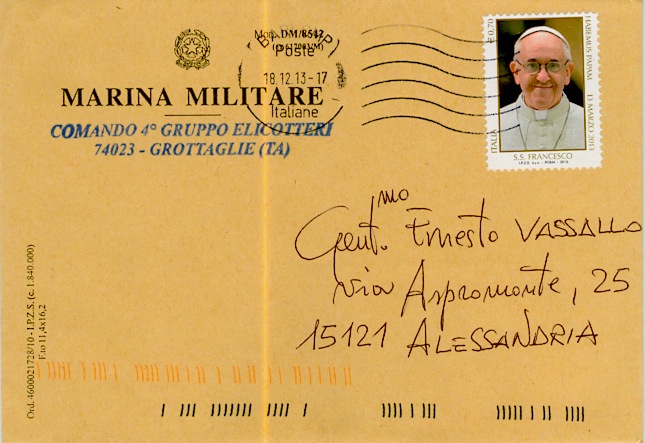 Mod. DM/8542
Poste
18.12.13-17
Italiane
MARINA MILITARE
COMANDO 4° GRUPPO ELICOTTERI
74023 - GROTTAGLIE (TA)
€ 0,70
HABEMUS PAPAM 13 MARZO 2013
ITALIA
S.S. FRANCESCO
I.P.Z.S. S.p.A. - ROMA - 2013
Gent.mo Ernesto VASSALLO
via Aspromonte, 25
15121 ALESSANDRIA
Ord. 4600021728/10 - I.P.Z.S. (c. 1.840.000)
F.to 11,4x16,2